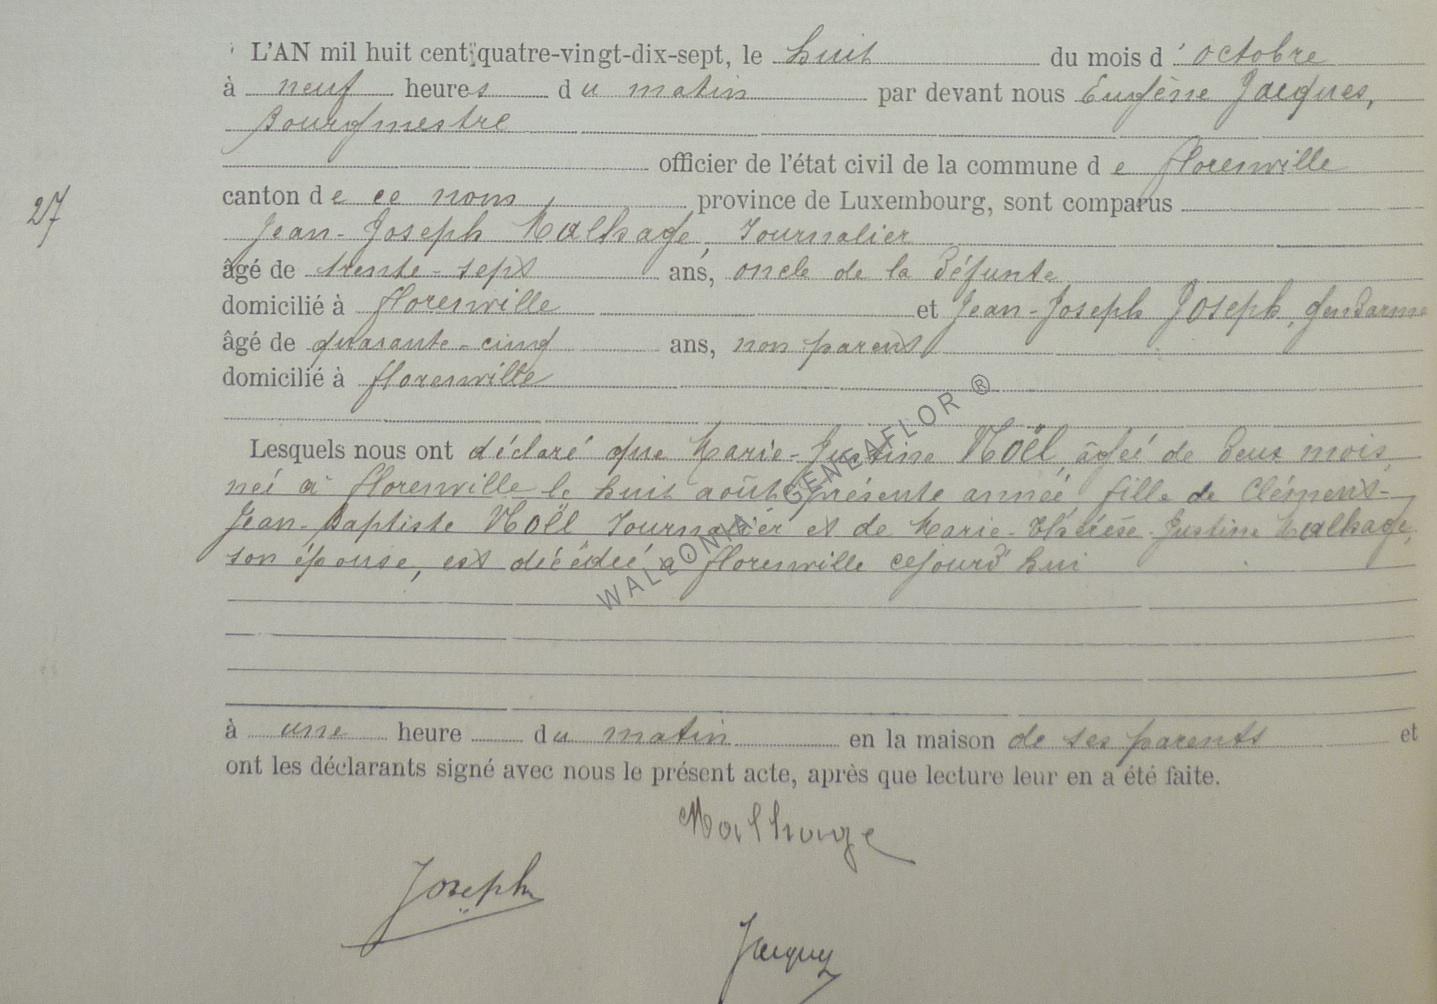 L'AN mil huit cent quatre-vingt-dix-sept, le huit du mois d'octobre
à neuf heures du matin par devant nous Eugène Jacques,
Bourgmestre
officier de l'état civil de la commune de Florenville
27
canton de ce nom province de Luxembourg, sont comparus
Jean-Joseph Malhage, Journalier
âgé de trente-sept ans, oncle de la défunte
domicilié à Florenville et Jean-Joseph Joseph, gendarme
âgé de quarante-cinq ans, non parent
domicilié à Florenville
Lesquels nous ont déclaré que Marie-Justine Noël, âgée de deux mois,
née à Florenville le huit août présente année, fille de Clément-
Jean-Baptiste Noël Journalier et de Marie-Thérèse-Justine Malhage,
son épouse, est décédée à Florenville cejourd'hui
WALLONIA GENEAFLOR ®
à une heure du matin en la maison de ses parents et
ont les déclarants signé avec nous le présent acte, après que lecture leur en a été faite.
Malhage
Joseph
Jacques